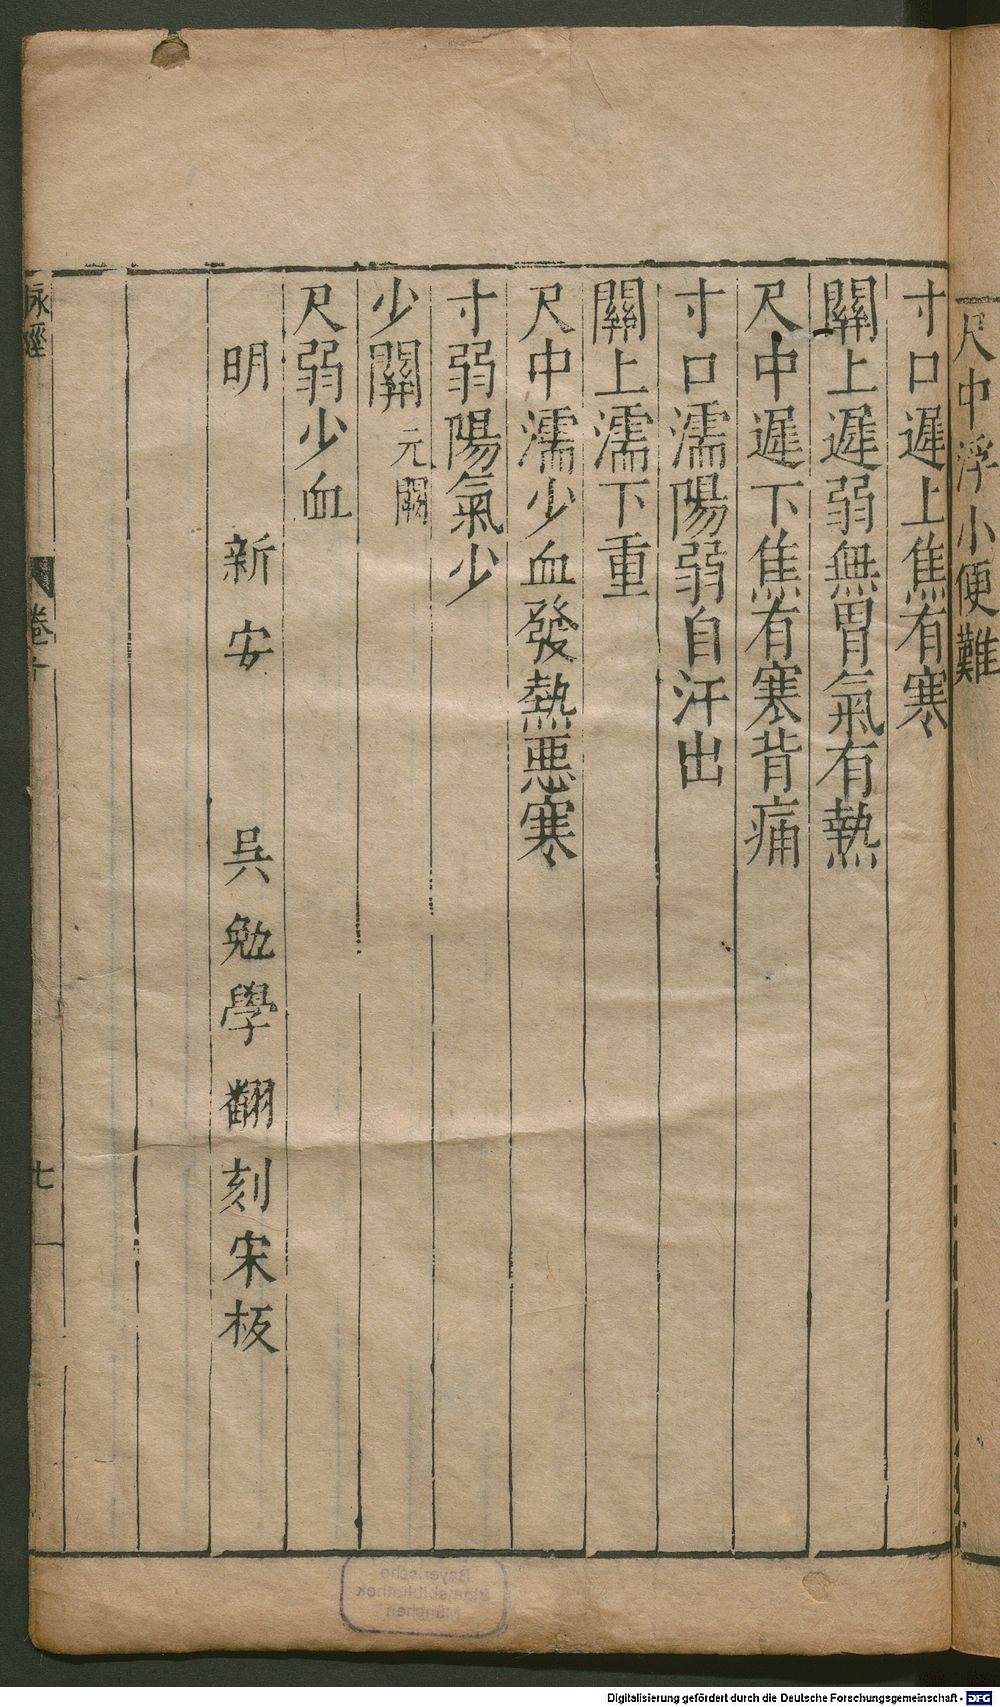 尺中浮小便難
寸口遲上焦有寒
關上遲弱無胃氣有熱
尺中遲下焦有寒背痛
寸口濡陽弱自汗出
關上濡下重
尺中濡少血發熱惡寒
寸弱陽氣少
少關元闕
尺弱少血
明 新安 吳勉學翻刻宋板
脉經 卷十 七
Bayerische
Staatsbibliothek
München
Digitalisierung gefördert durch die Deutsche Forschungsgemeinschaft - DFG